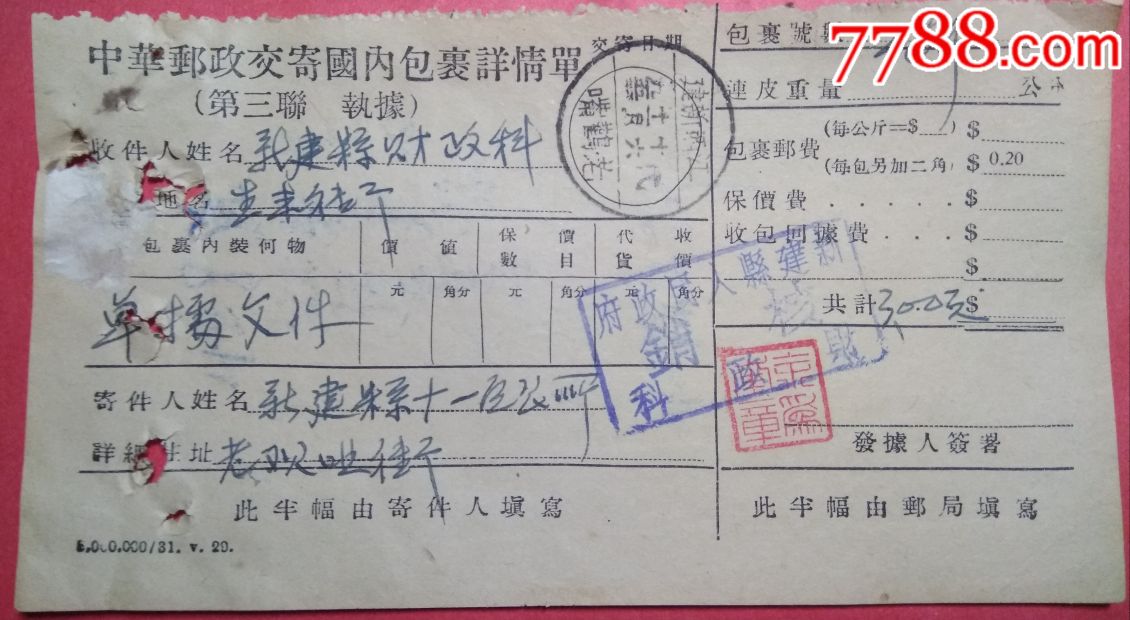 中華郵政交寄國內包裹詳情單
(第三聯 執據)
收件人姓名 新建縣財政科
地名
包裹內裝何物 價值 保價數目 代貨收價
元 角分 元 角分 元 角分
单據文件
寄件人姓名 新建縣十一区
詳細住址
此半幅由寄件人填寫
5,000,000/31. v. 29.
交寄日期
包裹號數
連皮重量 公
包裹郵費 (每公斤==$ ) $
(每包另加二角) $ 0.20
保價費 . . . . . $
收包回據費 . . . $
$
共計 $
3,000元
新建縣人民政府
財政科
銷
發據人簽署
此半幅由郵局填寫
7788.com